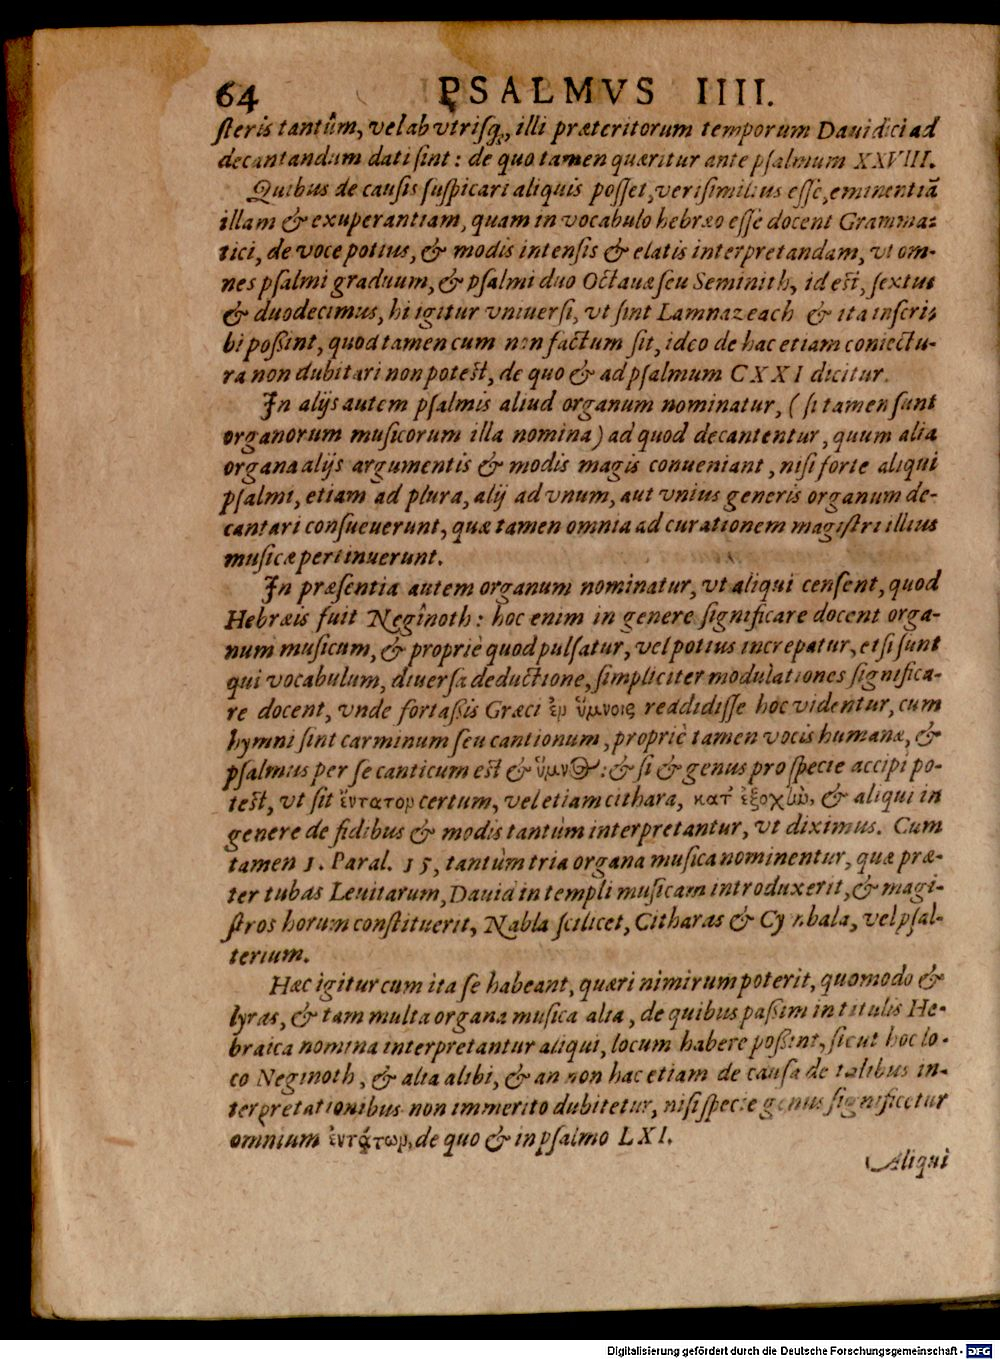 64 PSALMVS IIII.
ſteris tantûm, vel ab vtriſq;, illi præteritorum temporum Dauidici ad
decantandum dati ſint: de quo tamen quæritur ante pſalmum XXVIII.
Quibus de cauſis ſuſpicari aliquis poſſet, veriſimilius eſſe, eminentiã
illam & exuperantiam, quam in vocabulo hebræo eſſe docent Gramma-
tici, de voce potius, & modis intenſis & elatis interpretandam, vt om-
nes pſalmi graduum, & pſalmi duo Octauæ ſeu Seminith, id eſt, ſextus
& duodecimus, hi igitur vniuerſi, vt ſint Lamnazeach & ita inſcri-
bi poßint, quod tamen cum non factum ſit, ideo de hac etiam coniectu-
ra non dubitari non poteſt, de quo & ad pſalmum CXXI dicitur.
In alijs autem pſalmis aliud organum nominatur, (ſi tamen ſunt
organorum muſicorum illa nomina) ad quod decantentur, quum alia
organa alijs argumentis & modis magis conueniant, niſi forte aliqui
pſalmi, etiam ad plura, alij ad vnum, aut vnius generis organum de-
cantari conſueuerunt, quæ tamen omnia ad curationem magiſtri illius
muſicæ pertinuerunt.
In præſentia autem organum nominatur, vt aliqui cenſent, quod
Hebræis fuit Negînoth: hoc enim in genere ſignificare docent orga-
num muſicum, & propriè quod pulſatur, vel potius increpatur, etſi ſunt
qui vocabulum, diuerſa deductione, ſimpliciter modulationes ſignifica-
re docent, vnde fortaßis Græci ἐν ὕμνοις reddidiſſe hoc videntur, cum
hymni ſint carminum ſeu cantionum, propriè tamen vocis humanæ, &
pſalmus per ſe canticum eſt & ὕμνος: & ſi & genus pro ſpecie accipi po-
teſt, vt ſit ἔντατον certum, vel etiam cithara, κατ᾽ ἐξοχὼ, & aliqui in
genere de fidibus & modis tantùm interpretantur, vt diximus. Cum
tamen 1. Paral. 15, tantùm tria organa muſica nominentur, quæ præ-
ter tubas Leuitarum, Dauid in templi muſicam introduxerit, & magi-
ſtros horum conſtituerit, Nabla ſcilicet, Citharas & Cymbala, vel pſal-
terium.
Hæc igitur cum ita ſe habeant, quæri nimirum poterit, quomodo &
lyras, & tam multa organa muſica alia, de quibus paßim in titulis He-
braica nomina interpretantur aliqui, locum habere poßint, ſicut hoc lo-
co Neginoth, & alia alibi, & an non hac etiam de cauſa de talibus in-
terpretationibus non immerito dubitetur, niſi ſpecie genus ſignificetur
omnium ἐντάτων, de quo & in pſalmo LXI.
Aliqui
Digitalisierung gefördert durch die Deutsche Forschungsgemeinschaft - DFG